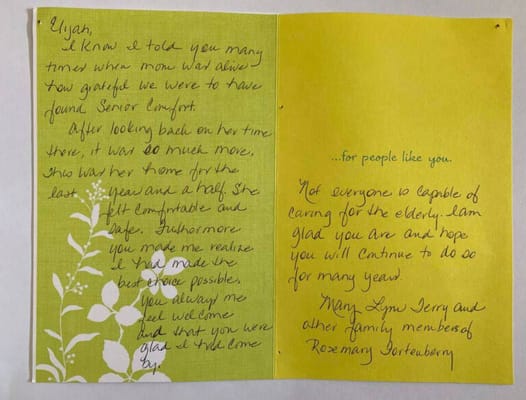 Elijah,
I know I told you many
times when mom was alive
how grateful we were to have
found Senior Comfort.
After looking back on her time
there, it was so much more.
This was her home for the
last year and a half. She
felt comfortable and
safe. Futhermore
you made me realize
I had made the
best choice possible.
You always me
feel welcome
and that you were
glad I had come
by.
...for people like you.
Not everyone is capable of
caring for the elderly. I am
glad you are and hope
you will continue to do so
for many years.
Mary Lynn Terry and
other family members of
Rosemary Fortenberry